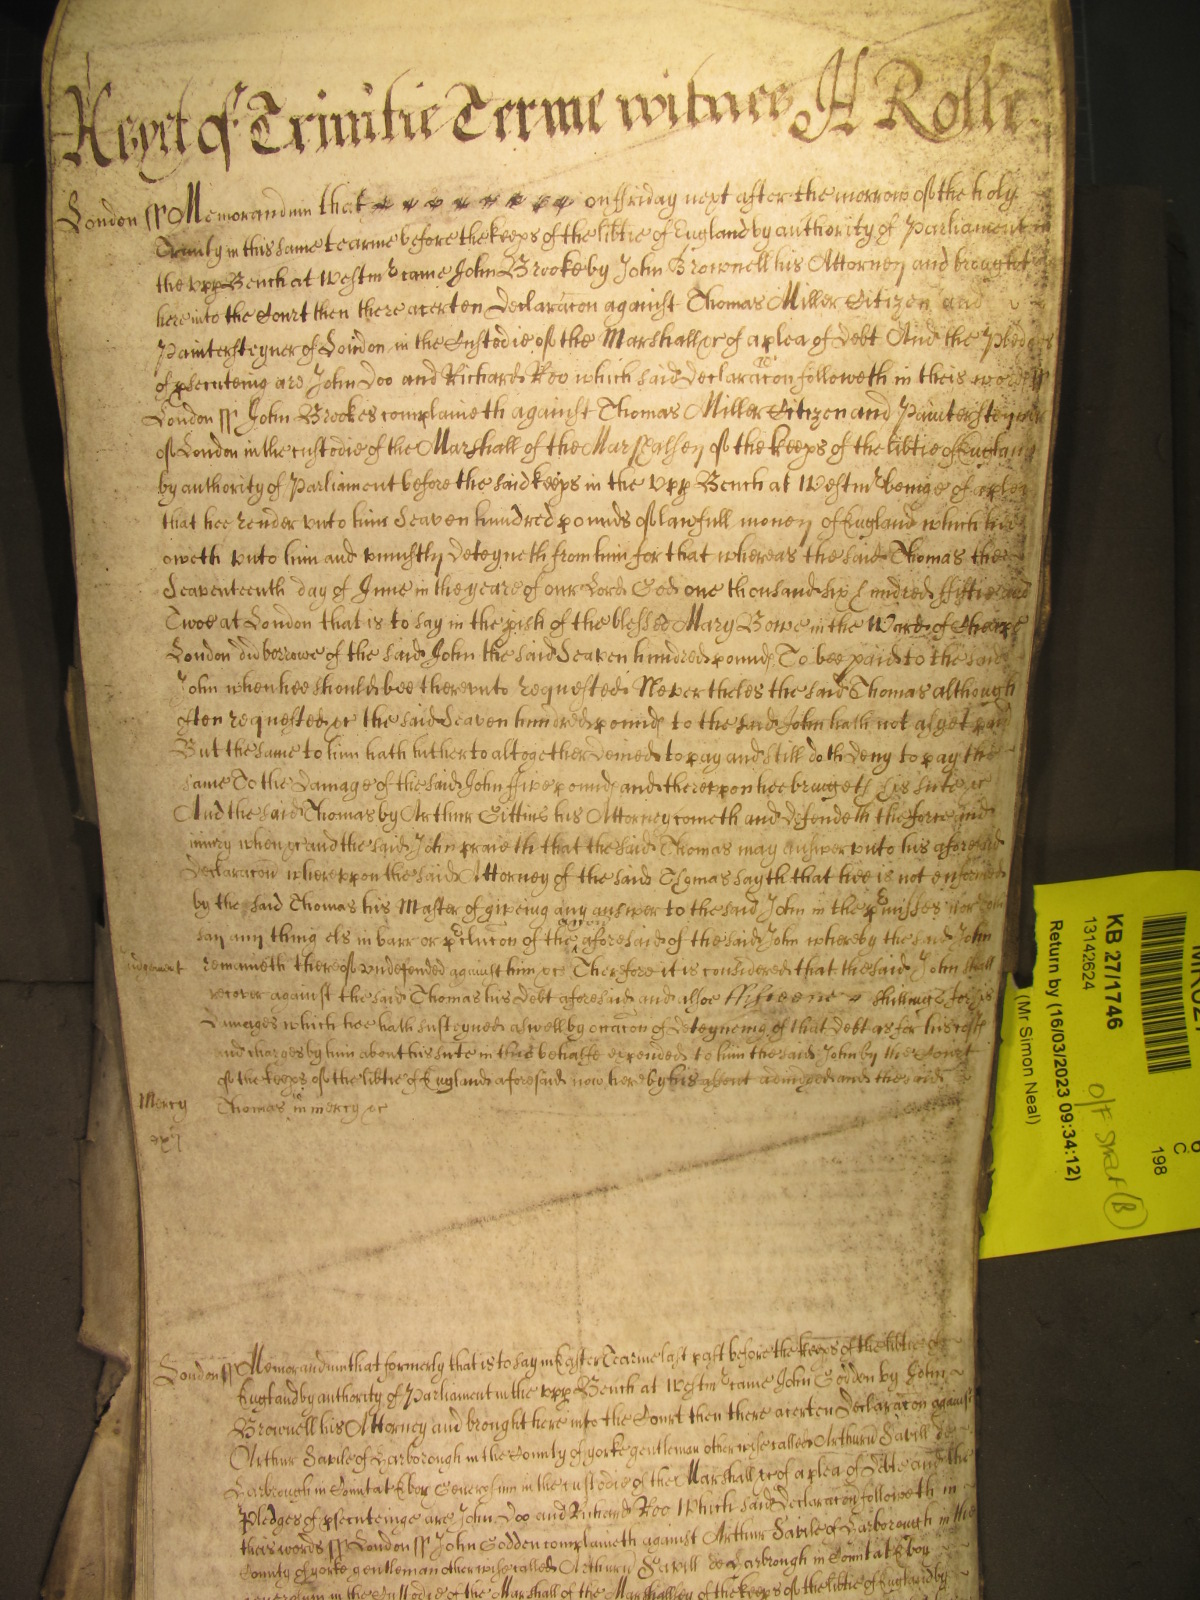 Yet of Trinitie Terme witnes H Rolle
London ss Memorandum that on ffriday next after the morrow of the holy
Trinity in this same tearme before the keeps of the libtie of England by authority of Parliament in
the vpp Bench at Westmr came John Brooke by John Brownell his Attorney and brought
here into the Court then there a certen declaracon against Thomas Miller Citizen and
Paintersteyner of London in the Custodie of the Marshall &c of a plea of debt And the Pledges
of psecuteing are John Doo and Richard Roo which said declaracon followeth in theis words ss
London ss John Brookes complaineth against Thomas Miller Citizen and Paintersteyner
of London in the custodie of the Marshall of the Marshalsey of the keeps of the libtie of England
by authority of Parliament before the said keeps in the vpp Bench at Westmr beinge of a plea
that hee render vnto him Seaven hundred pounds of lawfull money of England which hee
oweth vnto him and vniustly deteyneth from him for that whereas the said Thomas the
Seaventeenth day of June in the yeare of our Lord God one thousand six hundred ffiftie and
Twoe at London that is to say in the pish of the blessed Mary Bowe in the Ward of Cheape
London did borrowe of the said John the said Seaven hundred pounds To bee paid to the said
John when hee should bee therevnto requested Nevertheles the said Thomas although
often requested &c the said Seaven hundred pounds to the said John hath not as yet paid
But the same to him hath hitherto altogether denied to pay and still doth deny to pay the
same To the damage of the said John ffive pounds and therevpon hee bringeth his suite &c
And the said Thomas by Arthur Gittins his Attorney cometh and defendeth the force and
iniury when &c and the said John praieth that the said Thomas may answer vnto his aforesaid
declaracon wherevpon the said Attorney of the said Thomas sayth that hee is not enformed
by the said Thomas his Master of giveing any answer to the said John in the pmisses nor doth
say any thing els in barr or pclucon of the accon aforesaid of the said John whereby the said John
Judgement remaineth thereof vndefended against him &c Therefore it is considered that the said John shall
recover against the said Thomas his debt aforesaid and alsoe ffifteene shillings for his
damages which hee hath susteyned aswell by occacon of deteyneing of that debt as for his costs
and charges by him about his suite in this behalfe expended to him the said John by the Court
of the keeps of the libtie of England aforesaid now here by his assent adiudged and the said
Mercy Thomas in mercy &c
London ss Memorandum that formerly that is to say in Easter Tearme last past before the keeps of the libtie of
England by authority of Parliament in the vpp Bench at Westmr came John Godden by John
Brownell his Attorney and brought here into the Court then there a certen declaracon against
Arthur Savile of Yarborough in the County of yorke gentleman otherwise called Arthurii Savill de
Yarbrough in Comitat Ebor Generosum in the custodie of the Marshall &c of a plea of debte and the
pledges of psecuteinge are John Doo and Richard Roo Which said declaracon followeth in
theis words ss London ss John Godden complaineth against Arthur Savile of Yarborough in the
County of yorke gentleman otherwise called Arthurii Savill de Yarbrough in Comitat Ebor
generosum in the custodie of the Marshall of the Marshalsey of the keeps of the libtie of England by
KB 27/1746
13142624
Return by (16/03/2023 09:34:12)
(Mr Simon Neal)
O/F Strat B
C
198